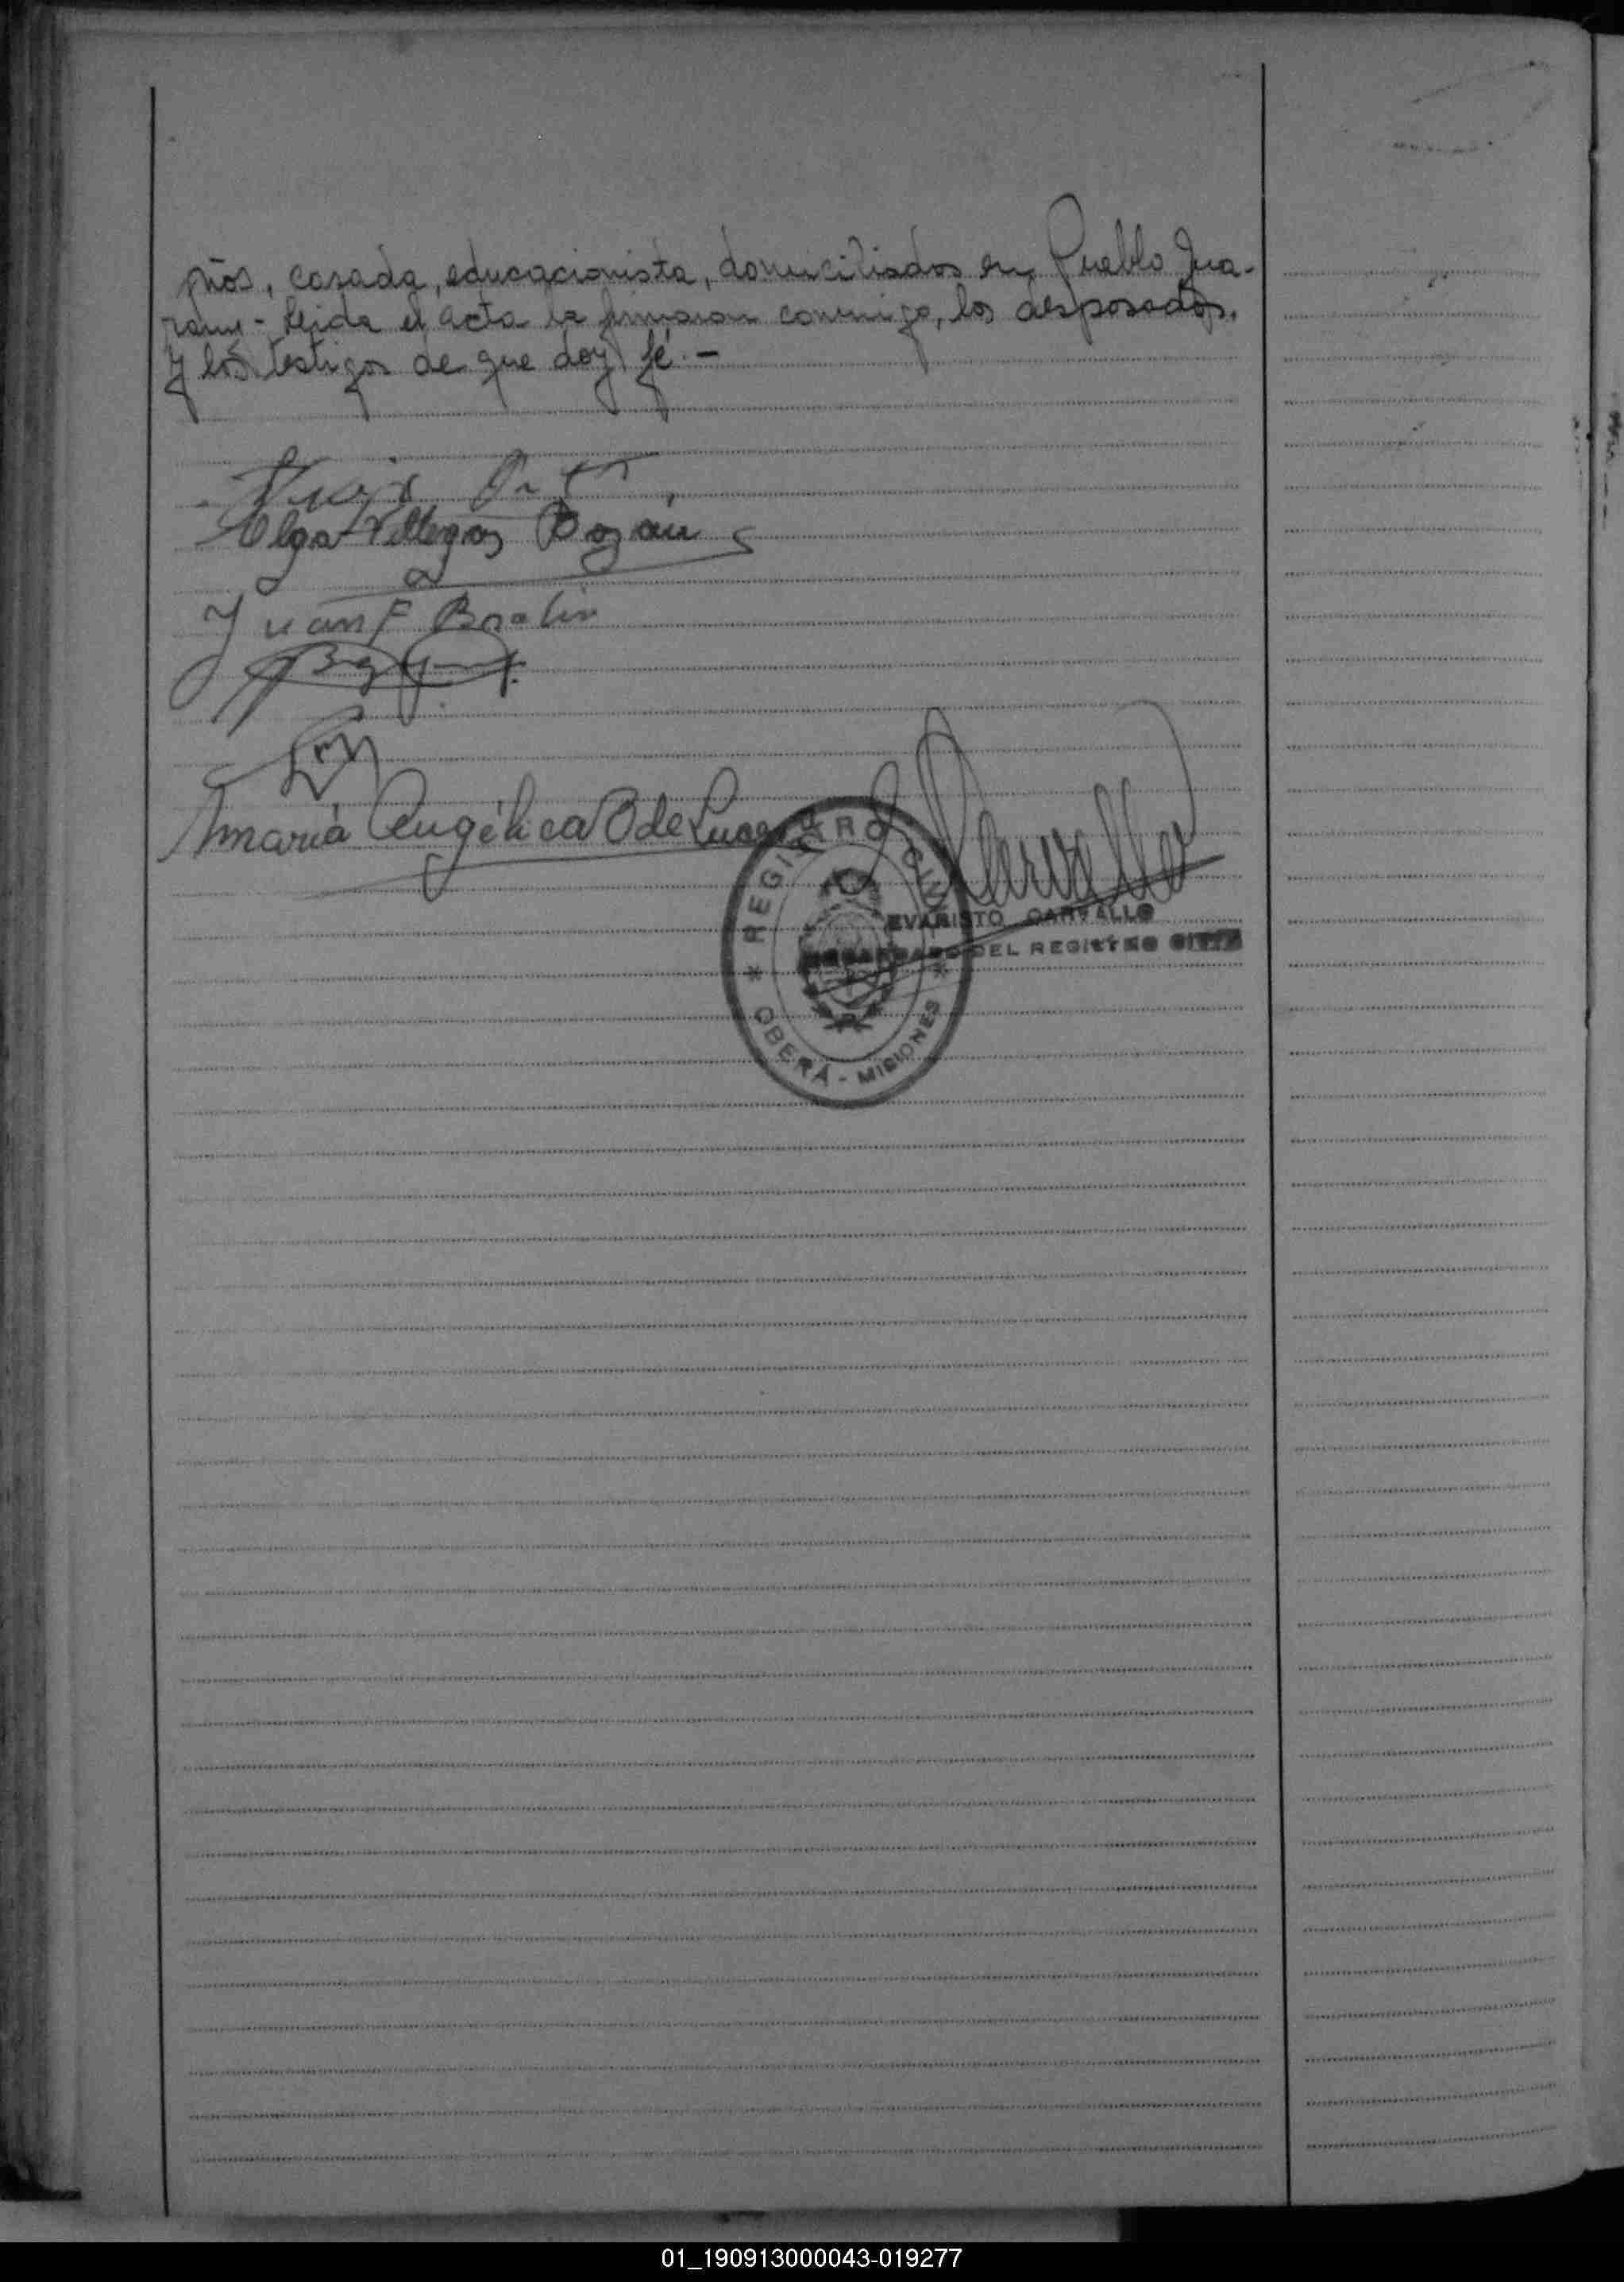 ños, casada, educacionista, domiciliados en Pueblo Gua-
rani - Leida el acta la firmaron conmigo, los desposados.
y los testigos de que doy fé. -
Olga Villegas Bazán
Juan F
María Angélica O de Lucero
REGISTRO CIVIL
EVARISTO CARVALLO
ENCARGADO DEL REGISTRO CIVIL
OBERÁ - MISIONES
01_190913000043-019277